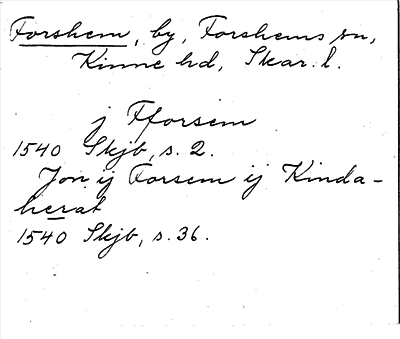 Forshem, by, Forshems sn,
Kinne hd, Skar. l.
j Fforsem
1540 Skjb, s. 2.
Jon ij Forsem ij Kinda-
herat
1540 Skjb, s. 36.